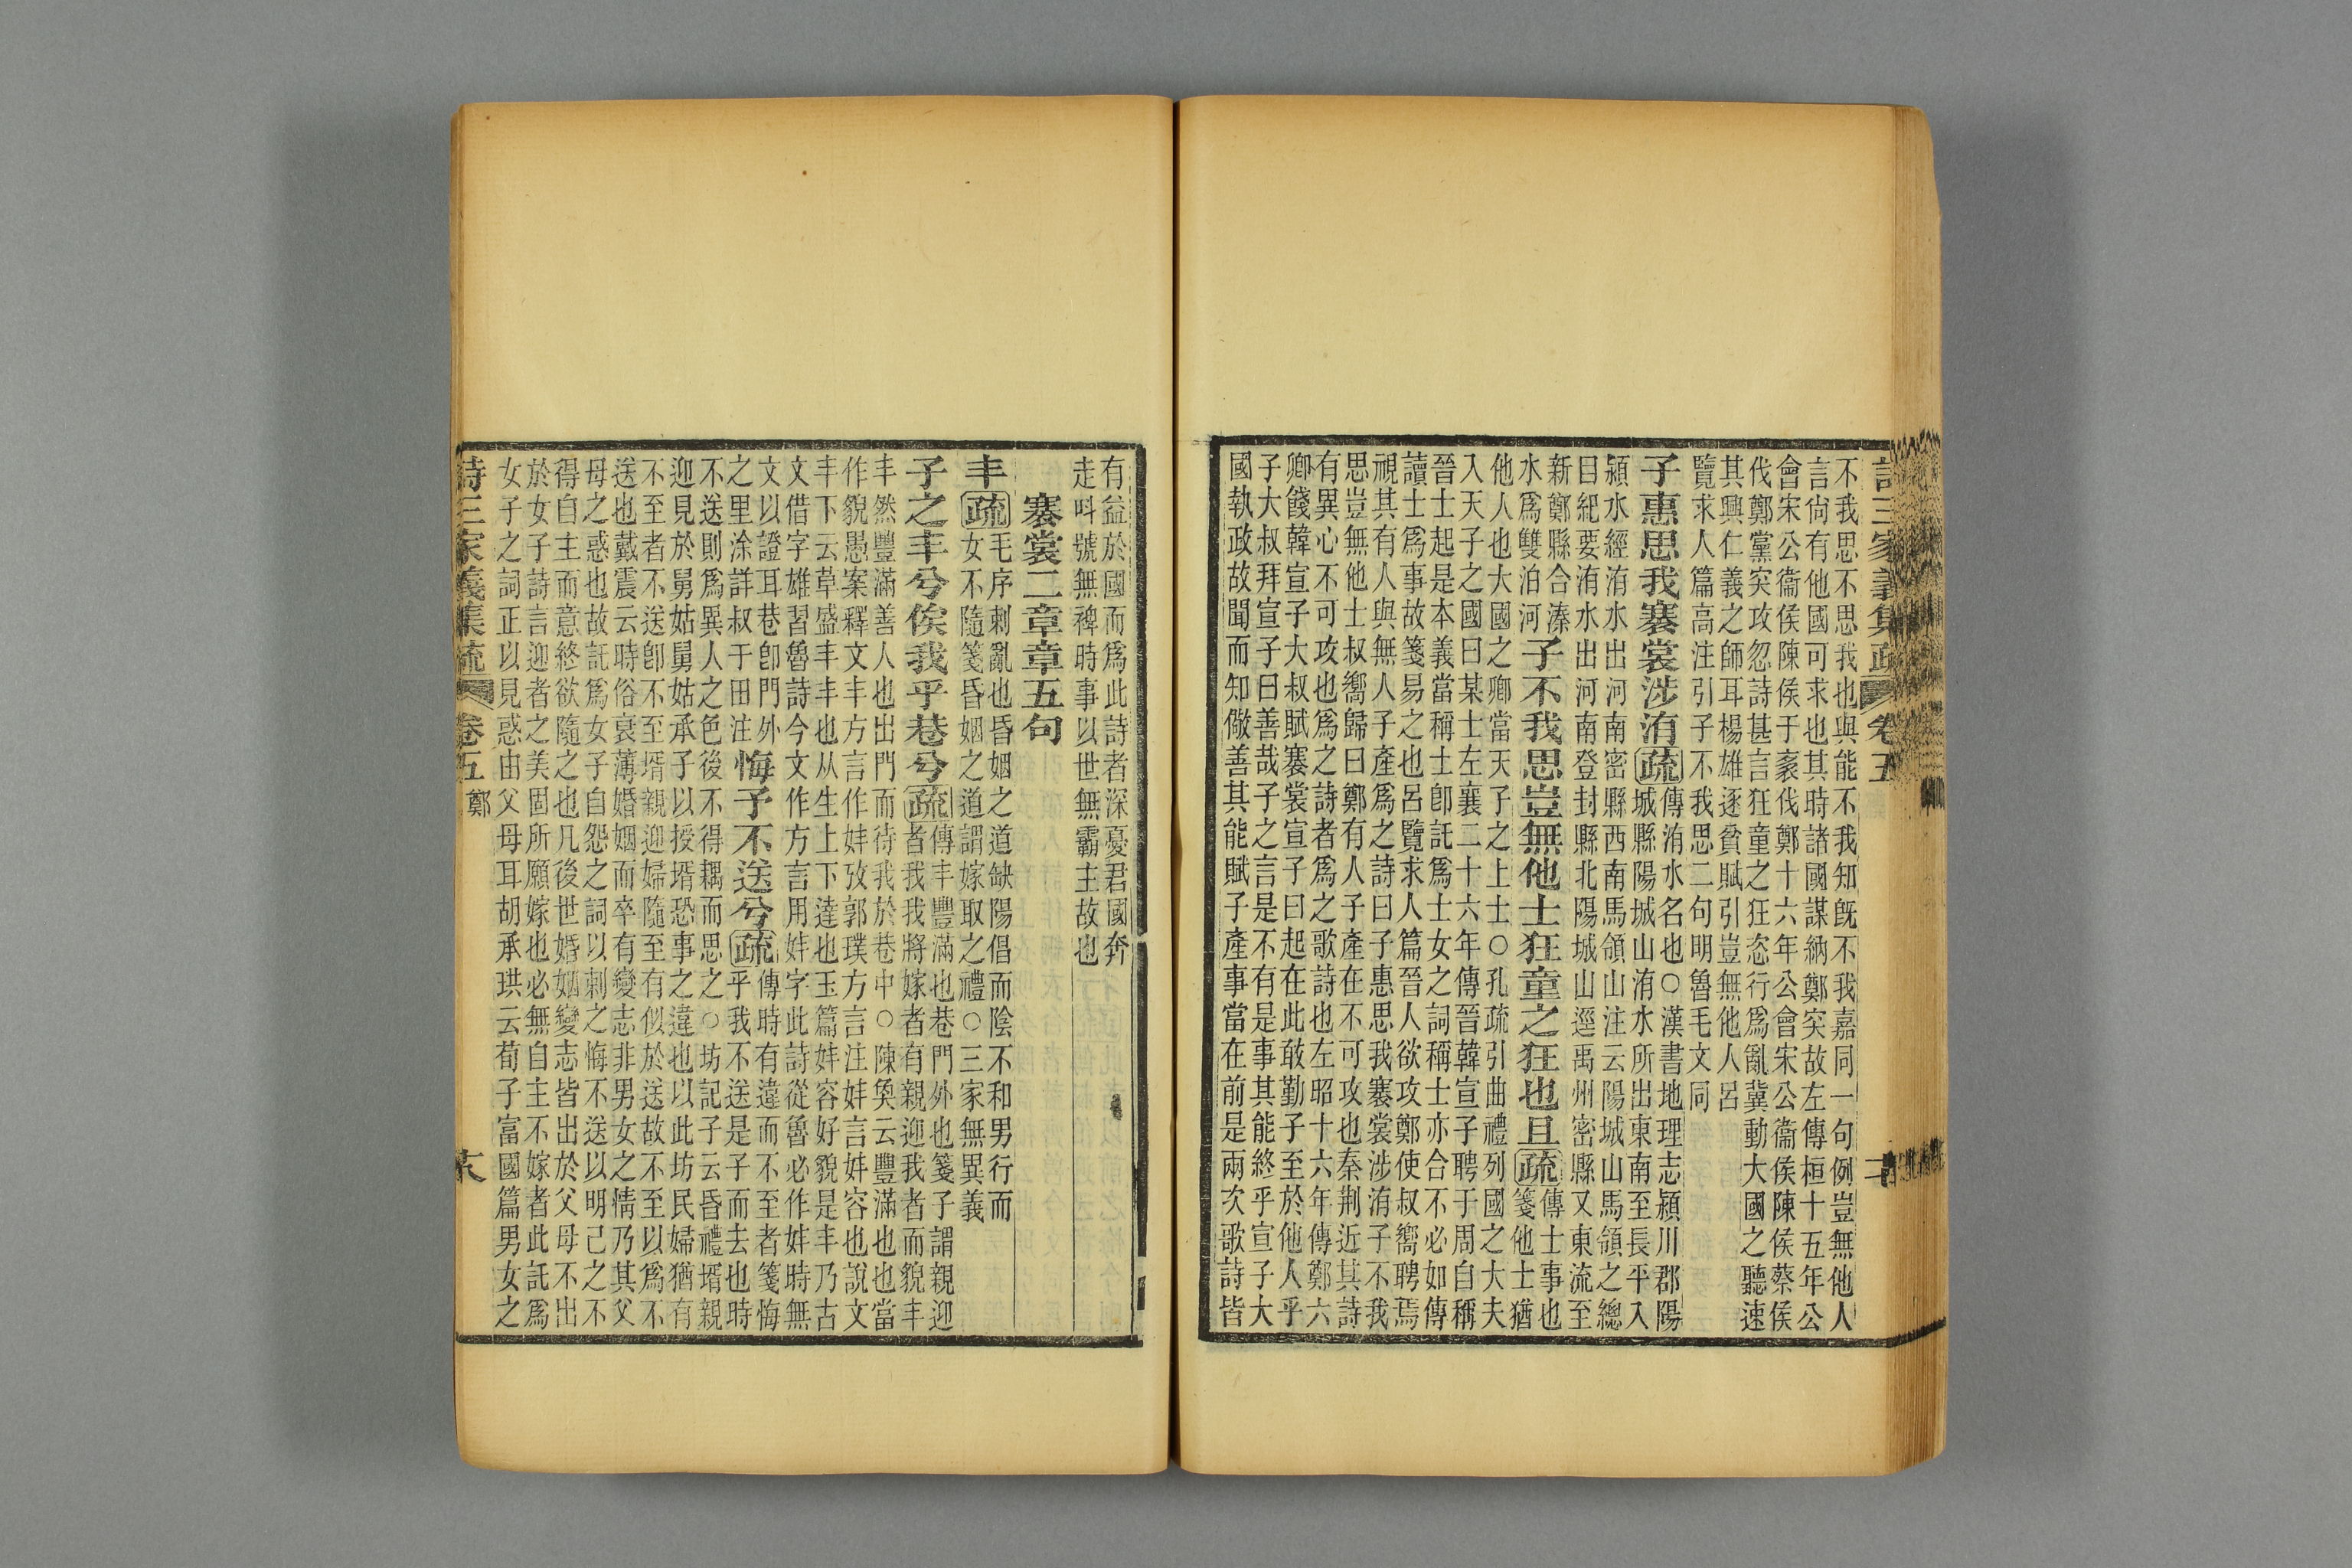 詩三家義集疏 卷五
不我思不思我也與能不我知既不我嘉同一句例豈無他人
言尙有他國可求也其時諸國謀納鄭突故左傳桓十五年公
會宋公衞侯陳侯于袲伐鄭十六年公會宋公衞侯陳侯蔡侯
伐鄭黨突攻忽詩甚言狂童之狂恣行爲亂冀動大國之聽速
其興仁義之師耳楊雄逐貧賦引豈無他人呂
覽求人篇高注引子不我思二句明魯毛文同
子惠思我褰裳涉洧疏傳洧水名也○漢書地理志潁川郡陽
城縣陽城山洧水所出東南至長平入
潁水經洧水出河南密縣西南馬領山注云陽城山馬領之總
目紀要洧水出河南登封縣北陽城山逕禹州密縣又東流至
新鄭縣合溱
水爲雙泊河子不我思豈無他士狂童之狂也且疏傳士事也
箋他士猶
他人也大國之卿當天子之上士○孔疏引曲禮列國之大夫
入天子之國曰某士左襄二十六年傳晉韓宣子聘于周自稱
晉士起是本義當稱士卽託爲士女之詞稱士亦合不必如傳
讀士爲事故箋易之也呂覽求人篇晉人欲攻鄭使叔嚮聘焉
視其有人與無人子產爲之詩曰子惠思我褰裳涉洧子不我
思豈無他士叔嚮歸曰鄭有人子產在不可攻也秦荆近其詩
有異心不可攻也爲之詩者爲之歌詩也左昭十六年傳鄭六
卿餞韓宣子大叔賦褰裳宣子曰起在此敢勤子至於他人乎
子大叔拜宣子曰善哉子之言是不有是事其能終乎宣子大
國執政故聞而知儆善其能賦子產事當在前是兩次歌詩皆
有益於國而爲此詩者深憂君國奔
走呌號無裨時事以世無霸主故也
褰裳二章章五句
丰疏毛序刺亂也昏姻之道缺陽倡而陰不和男行而
女不隨箋昏姻之道謂嫁取之禮○三家無異義
子之丰兮俟我乎巷兮疏傳丰豐滿也巷門外也箋子謂親迎
者我我將嫁者有親迎我者而貌丰
丰然豐滿善人也出門而待我於巷中○陳奐云豐滿也也當
作貌愚案釋文丰方言作妦攷郭璞方言注妦言妦容也說文
丰下云草盛丰丰也从生上下達也玉篇妦容好貌是丰乃古
文借字雄習魯詩今文作方言用妦字此詩從魯必作妦時無
文以證耳巷卽門外
之里涂詳叔于田注悔予不送兮疏傳時有違而不至者箋悔
乎我不送是子而去也時
不送則爲異人之色後不得耦而思之○坊記子云昏禮壻親
迎見於舅姑舅姑承子以授壻恐事之違也以此坊民婦猶有
不至者不送卽不至壻親迎婦隨至有似於送故不至以爲不
送也戴震云時俗衰薄婚姻而卒有變志非男女之情乃其父
母之惑也故託爲女子自怨之詞以刺之悔不送以明己之不
得自主而意終欲隨之也凡後世婚姻變志皆出於父母不出
於女子詩言迎者之美固所願嫁也必無自主不嫁者此託爲
女子之詞正以見惑由父母耳胡承珙云荀子富國篇男女之
詩三家義集疏 卷五 鄭